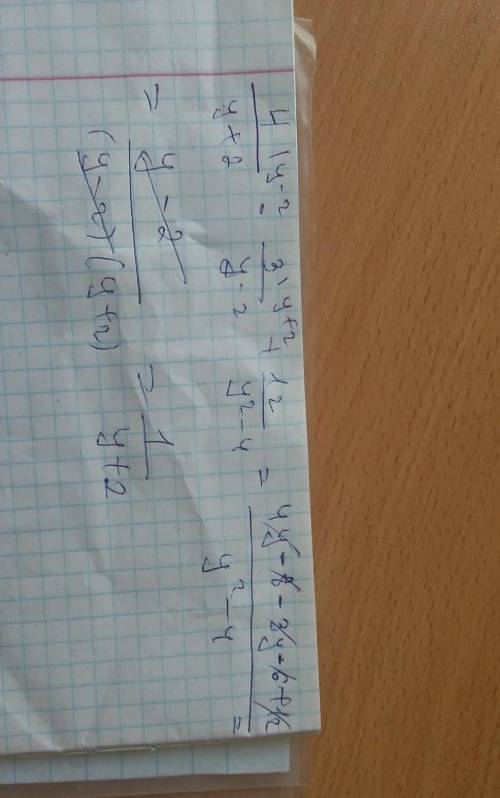 4 \y-2 / y+2 - 3 \y+2 / y-2 + 12 / y²-4 = 4y-8-3y-6+12 / y²-4 =
= y-2 / (y-2)(y+2) = 1 / y+2